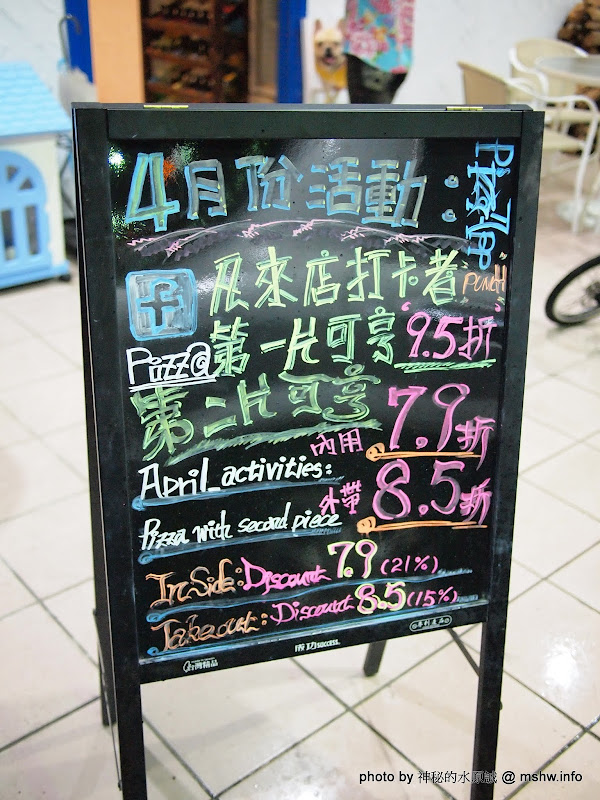 4月份活動:
Pizza
PUNCH
f 凡來店打卡者
Piizz@ 第一片可享"9.5折"
第二片可享 7.9折
內用
April activities:
外帶 8.5折
Pizza with second piece
In Side: Discount 7.9 (21%)
Takeout: Discount 8.5 (15%)
台灣精品
成功success.
專利產品
photo by 神秘的水原誠 @ mshw.info